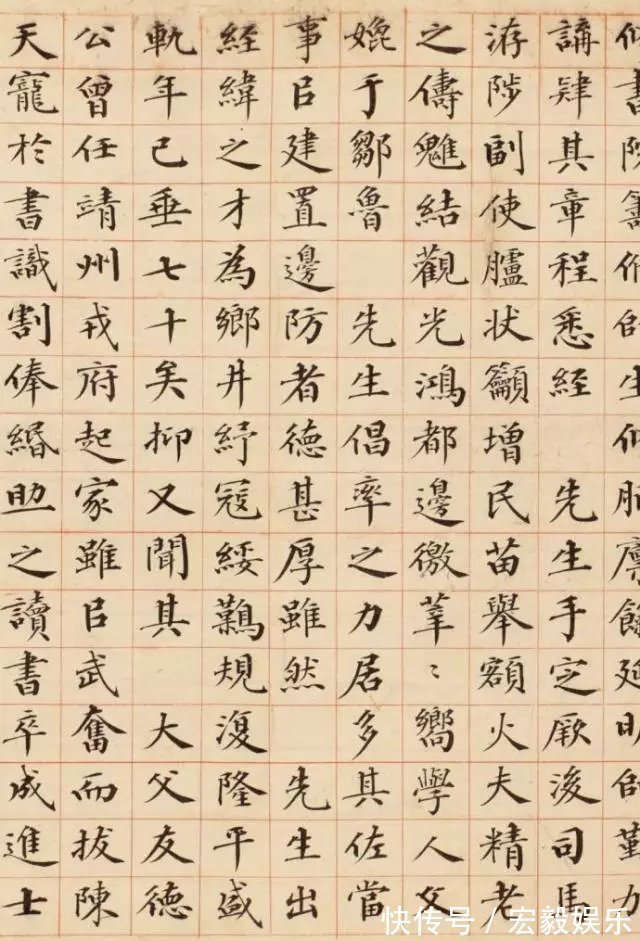 講肄其章程悉經 先生手定厥後司馬
游陟副使臚状籲增民苗舉額火夫精老
之儔魋結觀光鴻都邊徼莘〻嚮學人文
媲于鄒魯 先生倡率之力居多其佐當
事㠯建置邊防者德甚厚雖然 先生出
經緯之才為鄉井紓寇綏難規復隆平盛
軌年已垂七十矣抑又聞其 大父友德
公曾任靖州戎府起家雖㠯武奮而拔陳
天寵於書識割俸緡助之讀書卒成進士
快传号／宏毅娱乐